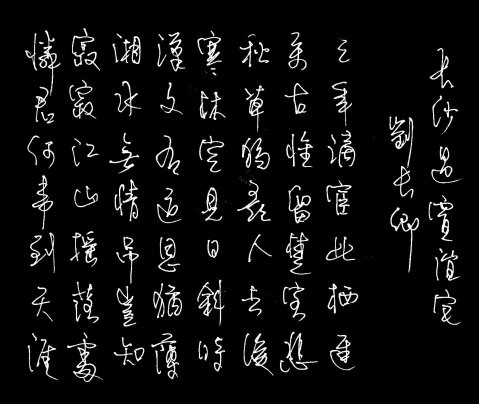 长沙過賈誼宅
劉长卿
三年謫宦此栖遲
万古惟留楚客悲
秋草獨尋人去後
寒林空見日斜時
漢文有道恩猶薄
湘水無情吊豈知
寂寂江山摇落處
憐君何事到天涯